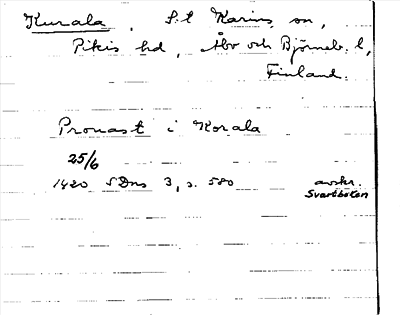 Kurala, S:t Karins sn,
Pikis hd, Åbo och Björneb. l,
Finland.
Pronast i Korala
25/6
1420 SDns 3, s. 580 avskr.
Svartboken